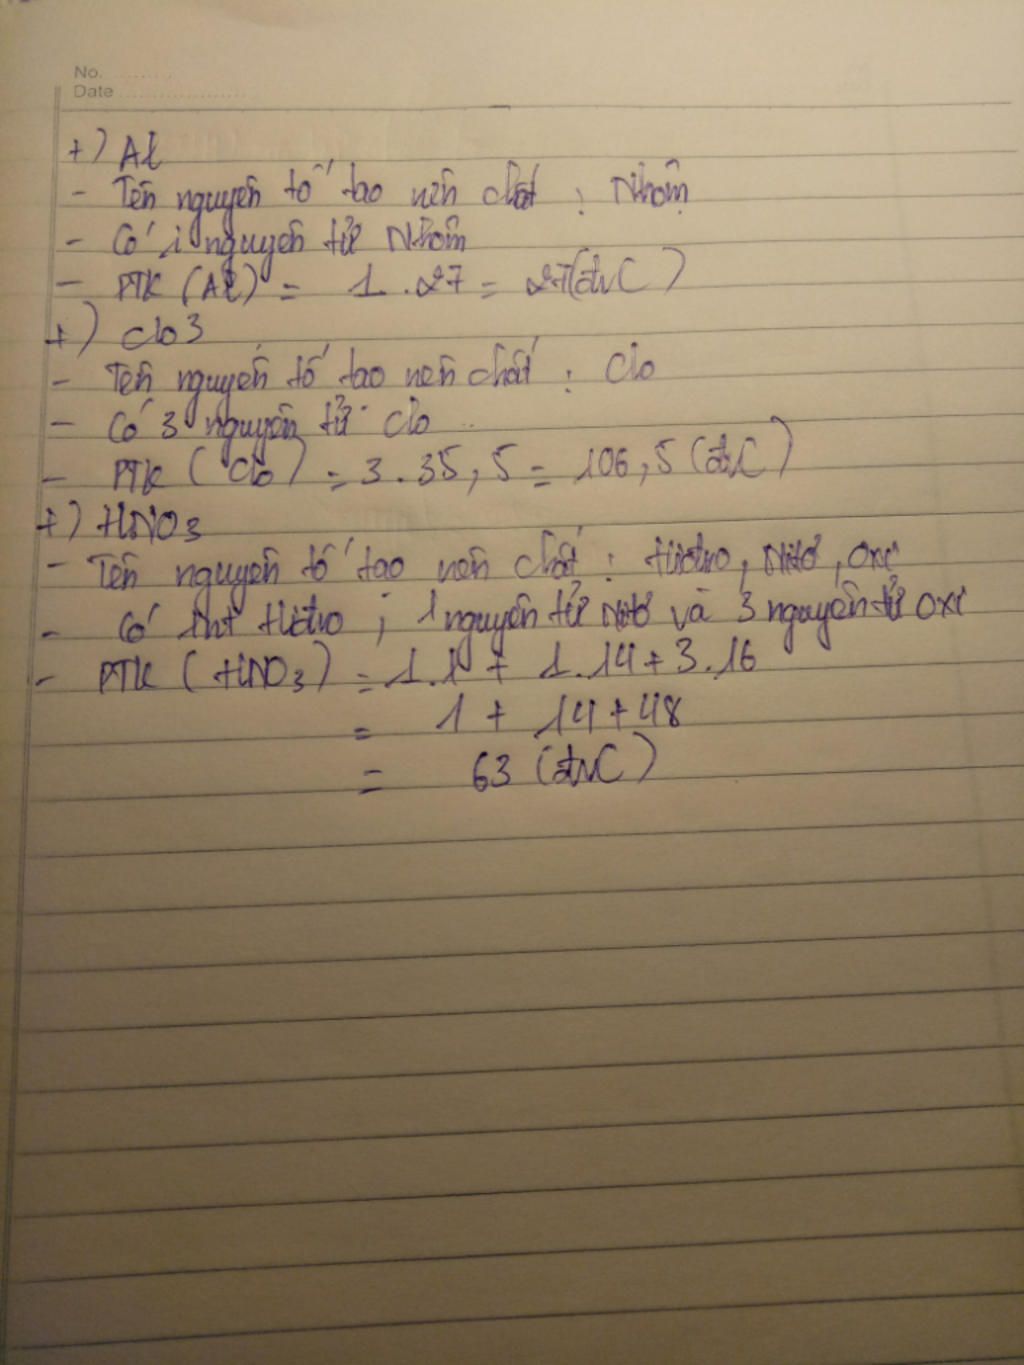 No. ............
Date ......................
+) Al
- Tên nguyên tố tạo nên chất : Nhôm
- Có 1 nguyên tử Nhôm
- PTK (Al) = 1 . 27 = 27(đvC)
+) Clo3
- Tên nguyên tố tạo nên chất : Clo
- Có 3 nguyên tử Clo
- PTK ( Clo ) = 3 . 35,5 = 106,5 (đvC)
+) HNO3
- Tên nguyên tố tạo nên chất : Hiđro, Nitơ, oxi
- Có 1nt Hiđro ; 1 nguyên tử Nitơ và 3 nguyên tử oxi
- PTK ( HNO3 ) = 1.1 + 1.14 + 3.16
= 1 + 14 + 48
= 63 (đvC)